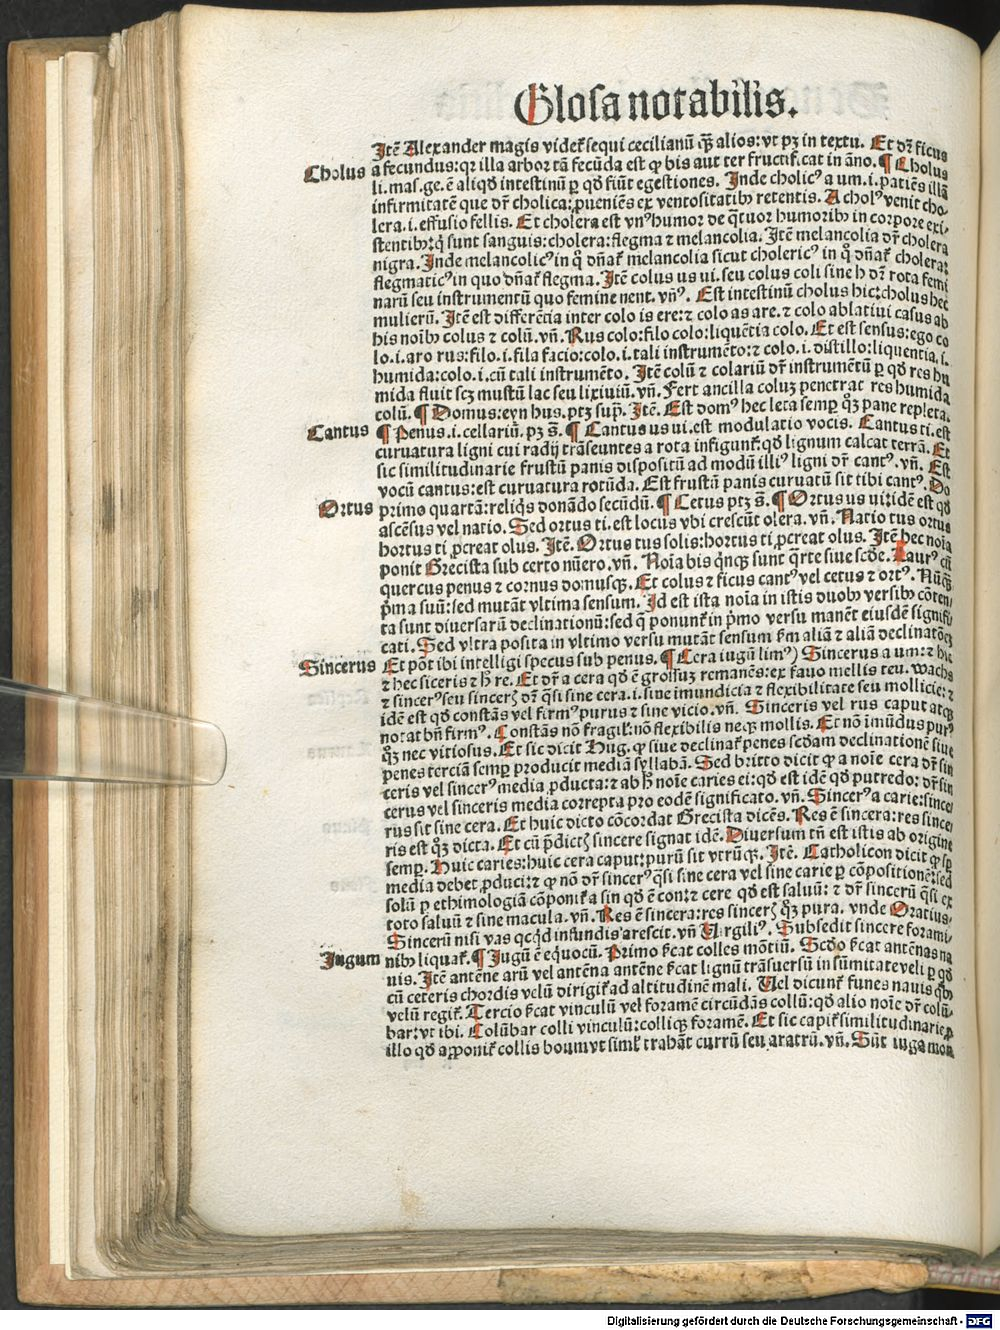 Glosa notabilis.
Itē Alexander magis videt᷑ sequi cecilianū q̄ȝ alios: vt pȝ in textu. Et dr̄ ficus
Cholus
a fecundus: qr illa arbor tā fecūda est ꝙ bis aut ter fructificat in āno. ¶ Cholus
li. mas. ge. ē aliqđ intestinū ꝑ qđ fiūt egestiones. Inde cholicꝰ a um. i. patiēs illā
infirmitatē que dr̄ cholica: ꝓueniēs ex ventositatibꝰ retentis. A cholꝰ venit cho-
lera. i. effusio fellis. Et cholera est vnꝰ humor de q̄tuor humoribꝰ in corpore exi-
stentibꝰ: q̇ sunt sanguis: cholera: flegma ⁊ melancolia. Itē melancolia dr̄ cholera
nigra. Inde melancolicꝰ in q̊ dn̄at᷑ melancolia sicut cholericꝰ in q̊ dn̄at᷑ cholera:
flegmaticꝰ in quo dn̄at᷑ flegma. Itē colus us ui. seu colus coli sine h dr̄ rota femi
narū seu instrumentū quo femine nent. vn̄ꝰ. Est intestinū cholus hic: cholus hec
mulierū. Itē est differētia inter colo is ere: ⁊ colo as are. ⁊ colo ablatiui casus ab
his noībꝰ colus ⁊ colū. vn̄. Rus colo: filo colo: liquētia colo. Et est sensus: ego co
lo. i. aro rus: filo. i. fila facio: colo. i. tali instrumēto: ⁊ colo. i. distillo: liquentia. i.
humida: colo. i. cū tali instrumēto. Itē colū ⁊ colariū dr̄ instrumētū ꝑ qđ res hu
mida fluit scȝ mustū lac seu lixiuiū. vn̄. Fert ancilla coluȝ penetrat res humida
colū. ¶ Domus: eyn hus. ptȝ sup̄. Itē. Est domꝰ hec leta semꝑ qȝ pane repleta.
Cantus
¶ Penus. i. cellariū. pȝ s̄. ¶ Cantus us ui. est modulatio vocis. Cantus ti. est
curuatura ligni cui radij trāseuntes a rota infigunt᷑: qđ lignum calcat terrā. Et
sic similitudinarie frustū panis dispositū ad modū illiꝰ ligni dr̄ cantꝰ. vn̄. Est
vocū cantus: est curuatura rotūda. Est frustā panis curuatū sit tibi cantꝰ. Do
Ortus
primo quartā: reliqs donādo secūdū. ¶ Cetus ptȝ s̄. ¶ Ortus us ui: idē est qđ
ascēsus vel natio. Sed ortus ti. est locus vbi crescūt olera. vn̄. Natio tus ortus
hortus ti ꝓcreat olus. Itē. Ortus tus solis: hortus ti ꝓcreat olus. Itē hec noīa
ponit Grecista sub certo nūero. vn̄. Noīa bis q̇nqȝ sunt q̄rte siue scđe. Laurꝰ cū
quercus penus ⁊ cornus domusqȝ. Et colus ⁊ ficus cantꝰ vel cetus ⁊ ortꝰ. Nūqȝ
pͥma suū: sed mutāt vltima sensum. Id est ista noīa in istis duobꝰ versibꝰ cōten-
ta sunt diuersarū declinationū: sed q̄ ponunt᷑ in pͥmo versu manēt eiusdē signifi-
cati. Sed vltra posita in vltimo versu mutāt sensum ẜm aliā ⁊ aliā declinatōeȝ
Sincerus
Et pōt ibi intelligi specus sub penus. ¶ Cera iugū limꝰ) Sincerus a um: ⁊ hic
⁊ hec siceris ⁊ h̄ re. Et dr̄ a cera qđ ē grossuȝ remanēs: ex fauo mellis teu. wachs
⁊ sincerꝰ seu sinceris dr̄ q̄si sine cera. i. sine imundicia ⁊ flexibilitate seu mollicie: ⁊
idē est qđ constās vel firmꝰ purus ⁊ sine vicio. vn̄. Sinceris vel rus caput atqȝ
notat bn̄ firmꝰ. Constās nō fragil: nō flexibilis neqȝ mollis. Et nō īmūdus purꝰ
qȝ nec vitiosus. Et sic dicit Hug. ꝙ siue declinat᷑ penes scđam declinationē siue
penes terciā semꝑ producit mediā syllabā. Sed britto dicit ꝙ a noīe cera dr̄ sin
ceris vel sincerꝰ media ꝓducta: ⁊ ab h̄ noīe caries ei: qđ est idē qđ putredo: dr̄ sin
cerus vel sinceris media correpta pro eodē significato. vn̄. Sincerꝰ a carie: since
rus sit sine cera. Et huic dicto cōcordat Grecista dicēs. Res ē sincera: res since
ris est qȝ dicta. Et cū p̄dictis sincere signat idē. Diuersum tn̄ est istis ab origine
semꝑ. Huic caries: huic cera caput: purū sit vtrūqȝ. Itē. Catholicon dicit ꝙ sp̄
media debet ꝓduci: ⁊ ꝙ nō dr̄ sincerꝰ q̄si sine cera vel sine carie ꝑ cōpositionē: sed
solū ꝑ ethimologiā cōponit᷑ a sin qđ ē con: ⁊ cere qđ est saluū: ⁊ dr̄ sincerū q̄si ex
toto saluū ⁊ sine macula. vn̄. Res ē sincera: res sinceris qȝ pura. vnde Oratius.
Sincerū nisi vas qcq̇d infundis arescit. vn̄ Virgiliꝰ. Subsedit sincere forami-
Jugum
nibꝰ liquat᷑. ¶ Jugū ē equocū. Primo ẜcat colles mōtiū. Scđo ẜcat antēnas na
uis. Itē antēne arū vel antēna antēne ẜcat lignū trāsuersū in sūmitate veli ꝑ qđ
cū ceteris chordis velū dirigit᷑ ad altitudinē mali. Vel dicunt᷑ funes nauis qbꝰ
velū regit᷑. Tercio ẜcat vinculū vel foramē circūdās collū: qđ alio noīe dr̄ colū-
bar: vt ibi. Colūbar colli vinculū: colliqȝ foramē. Et sic capit᷑ similitudinarie ꝓ
illo qđ apponit᷑ collis boum vt simͥl trahāt currū seu aratrū. vn̄. Sūt iuga mon
Digitalisierung gefördert durch die Deutsche Forschungsgemeinschaft - DFG